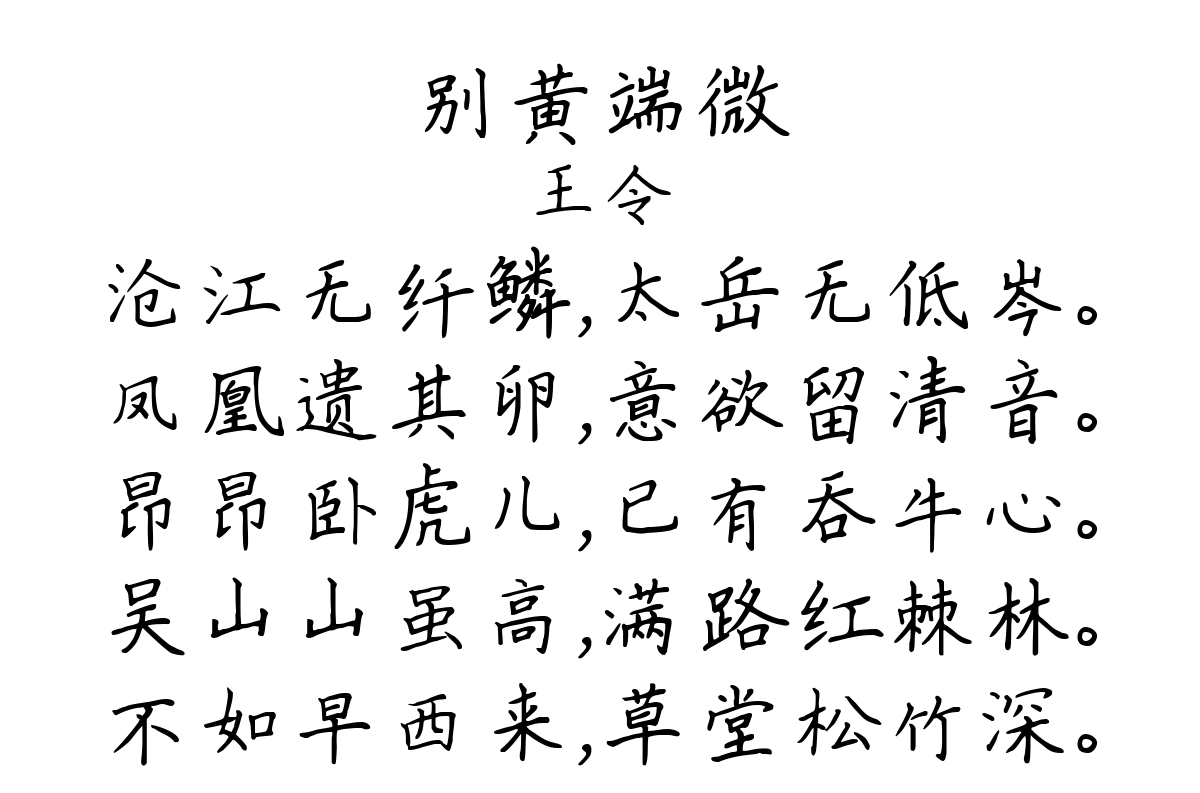 别黄端微
王令
沧江无纤鳞,太岳无低岑。
凤凰遗其卵,意欲留清音。
昂昂卧虎儿,已有吞牛心。
吴山山虽高,满路红棘林。
不如早西来,草堂松竹深。